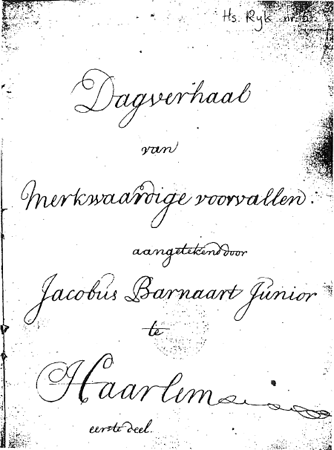 Hs. Ryk nr. 6.
Dagverhaal
van
Merkwaardige voorvallen.
aangetekend door
Jacobus Barnaart Junior
te
Haarlem
eerste deel.